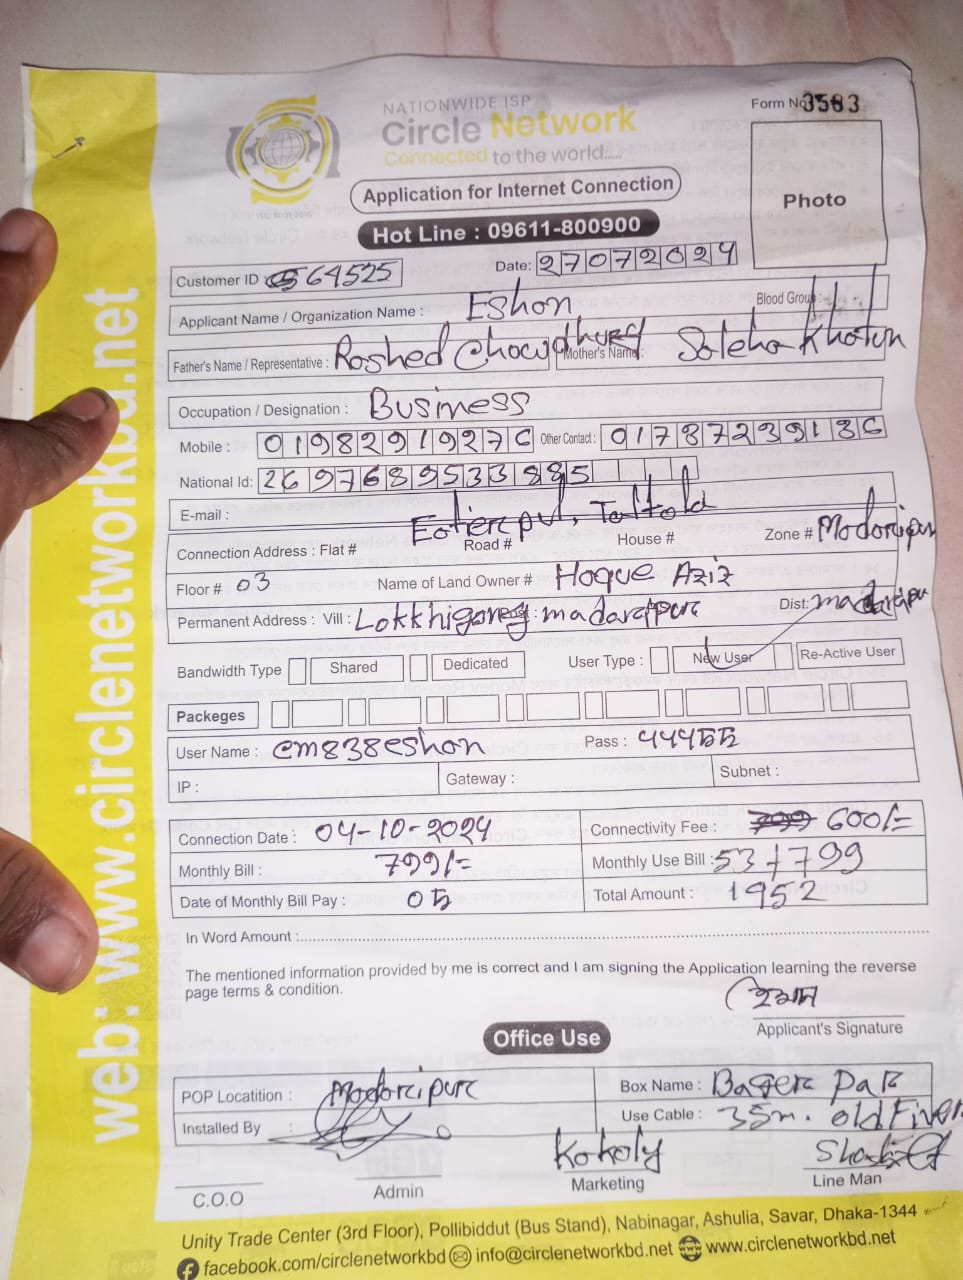 NATIONWIDE ISP
Circle Network
Connected to the world.....
Form No 3583
Photo
Application for Internet Connection
Hot Line : 09611-800900
Customer ID : 564525
Date: 27072024
Applicant Name / Organization Name : Eshon
Blood Group :
Father's Name / Representative : Roshed Chowdhury Mother's Name: Soleha Khatun
Occupation / Designation : Business
Mobile : 01982919276 Other Contact : 01787239136
National Id: 2697689533885
E-mail :
Connection Address : Flat # Road # House # Zone # Modoripur
Floor # 03 Name of Land Owner # Hoque Aziz
Permanent Address : Vill : Lokkhigonj madaripur Dist: madaripur
Bandwidth Type Shared Dedicated User Type : New User Re-Active User
Packeges
User Name : cm838eshon Pass :
IP : Gateway : Subnet :
Connection Date : 04-10-2024 Connectivity Fee : 799 600/=
Monthly Bill : 799/= Monthly Use Bill : 53+799
Date of Monthly Bill Pay : Total Amount : 1952
In Word Amount :
The mentioned information provided by me is correct and I am signing the Application learning the reverse
page terms & condition.
Applicant's Signature
Office Use
POP Locatition : Modoripur Box Name : Bager Par
Installed By : Use Cable : 35m. old Fiver
Kokoly
C.O.O Admin Marketing Line Man
Unity Trade Center (3rd Floor), Pollibiddut (Bus Stand), Nabinagar, Ashulia, Savar, Dhaka-1344
facebook.com/circlenetworkbd info@circlenetworkbd.net www.circlenetworkbd.net
web: www.circlenetworkbd.net